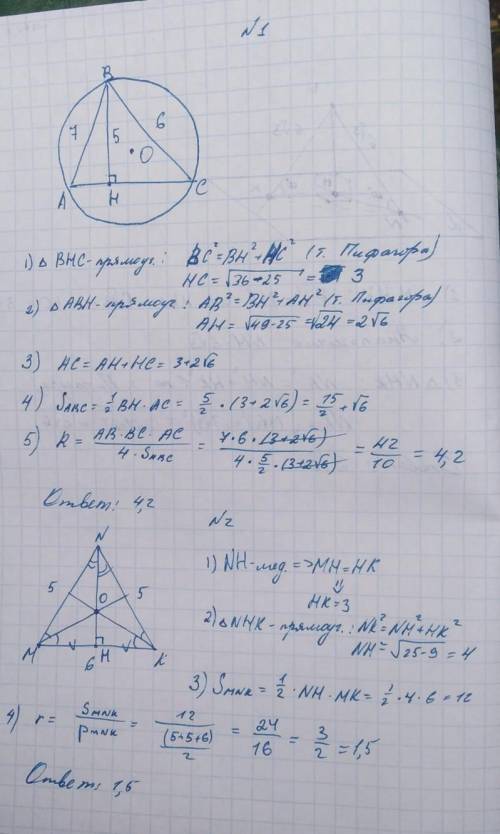 N1
B
7 5 6
O
A H C
1) △ BHC - прямоуг.: BC² = BH² + HC² (т. Пифагора)
HC = √36-25 = 3
2) △ABH - прямоуг.: AB² = BH² + AH² (т. Пифагора)
AH = √49-25 = √24 = 2√6
3) AC = AH + HC = 3+2√6
4) S_ABC = 1/2 BH · AC = 5/2 · (3+2√6) = 15/2 + √6
5) R = AB · BC · AC / 4 · S_ABC = 7 · 6 · (3+2√6) / 4 · 5/2 · (3+2√6) = 42/10 = 4,2
Ответ: 4,2
N2
N
5 5
O
M 6 H K
1) NH - мед. => MH = HK
⇓
HK = 3
2) △NHK - прямоуг.: NK² = NH² + HK²
NH = √25-9 = 4
3) S_MNK = 1/2 · NH · MK = 1/2 · 4 · 6 = 12
4) r = S_MNK / P_MNK = 12 / (5+5+6)/2 = 24/16 = 3/2 = 1,5
Ответ: 1,5